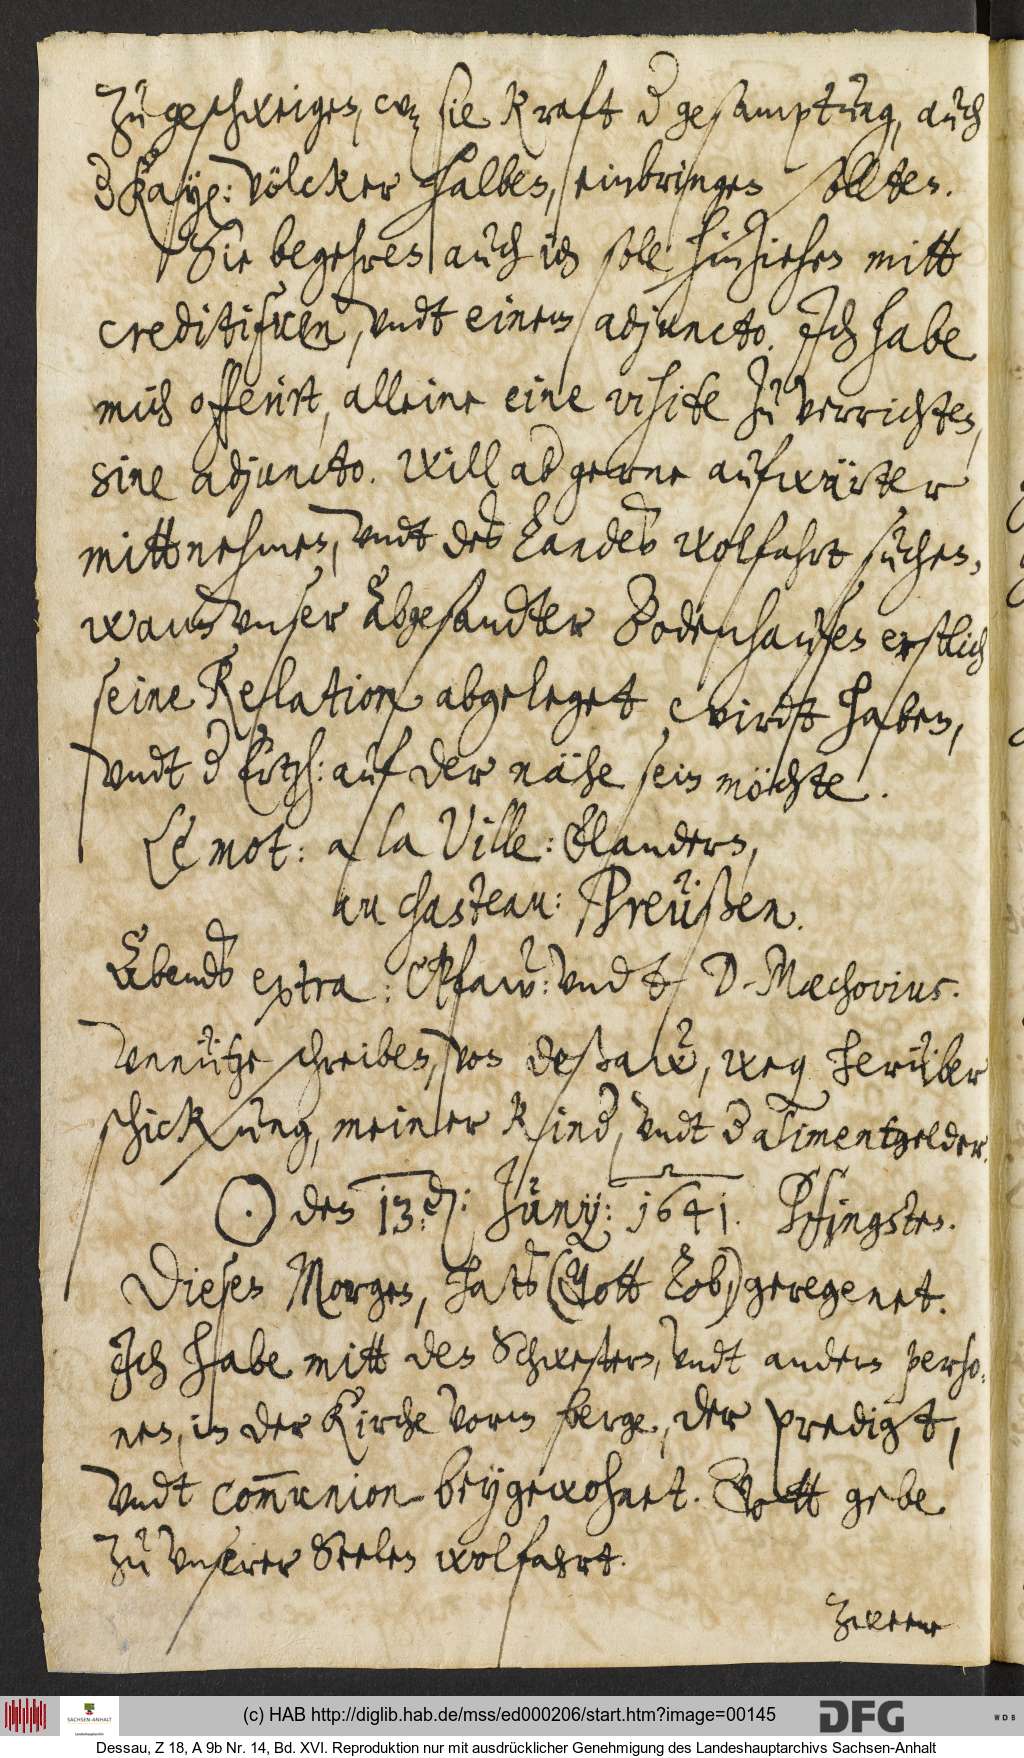 zu geschweigen, was sie Kraft d gesampttung, auch
d Kayß: völcker halben, einbringen sollten.
Sie begehren auch ich soll hinziehen mitt
creditifuen, undt einem adjuncto. Ich habe
mich offerirt, alleine eine visite zu verrichten,
sine adjuncto. Will ab gerne aufwärter
mittnehmen, undt des Landes wolfahrt suchen,
wann unser Abgesandter Bodenhausen erstlich
seine Relation abgeleget wirdt haben,
undt d Ertzh: auf der nähe sein möchte.
Le mot: a la Ville: Flanders,
au chasteau: Preüßen.
Abends extra: Pfaw: undt D. Mechovius.
Unnütze schreiben, von deßaw, weg herüber
schickung, meiner Kind, undt d alimentgelder.
☉ den 13. Juny: 1641. Pfingsten.
Diesen Morgen, hats (Gott Lob) geregenet.
Ich habe mitt den Schwestern, undt andern perso-
nen, in der Kirche vorm berge, der predigt,
undt com̄union beygewohnet. Gott gebe
zu unserer Seelen wolfahrt.
Zweene
(c) HAB http://diglib.hab.de/mss/ed000206/start.htm?image=00145
SACHSEN-ANHALT
DFG
WDB
Dessau, Z 18, A 9b Nr. 14, Bd. XVI. Reproduktion nur mit ausdrücklicher Genehmigung des Landeshauptarchivs Sachsen-Anhalt